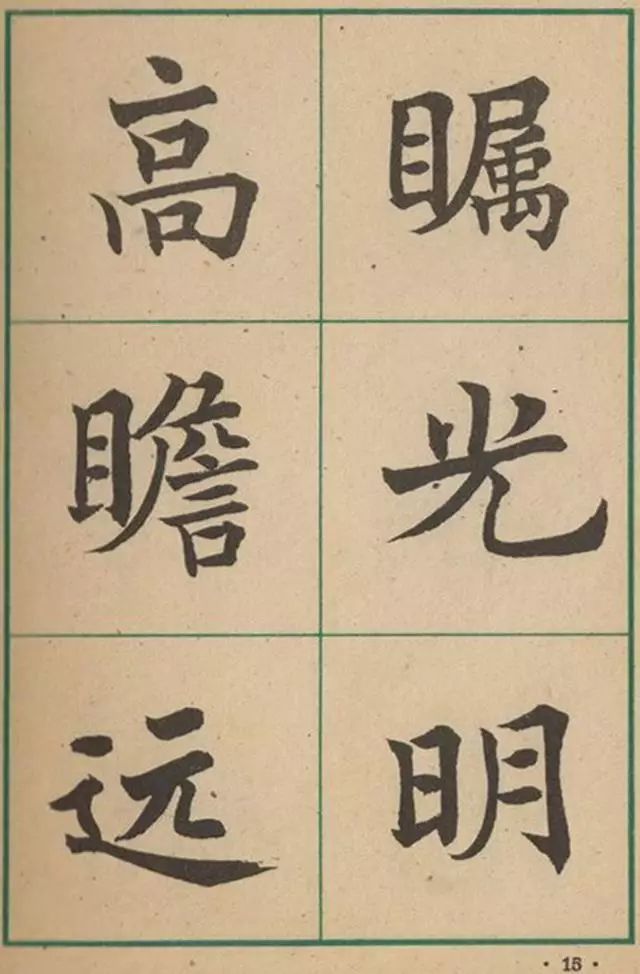 高瞻远
瞩光明
· 15 ·